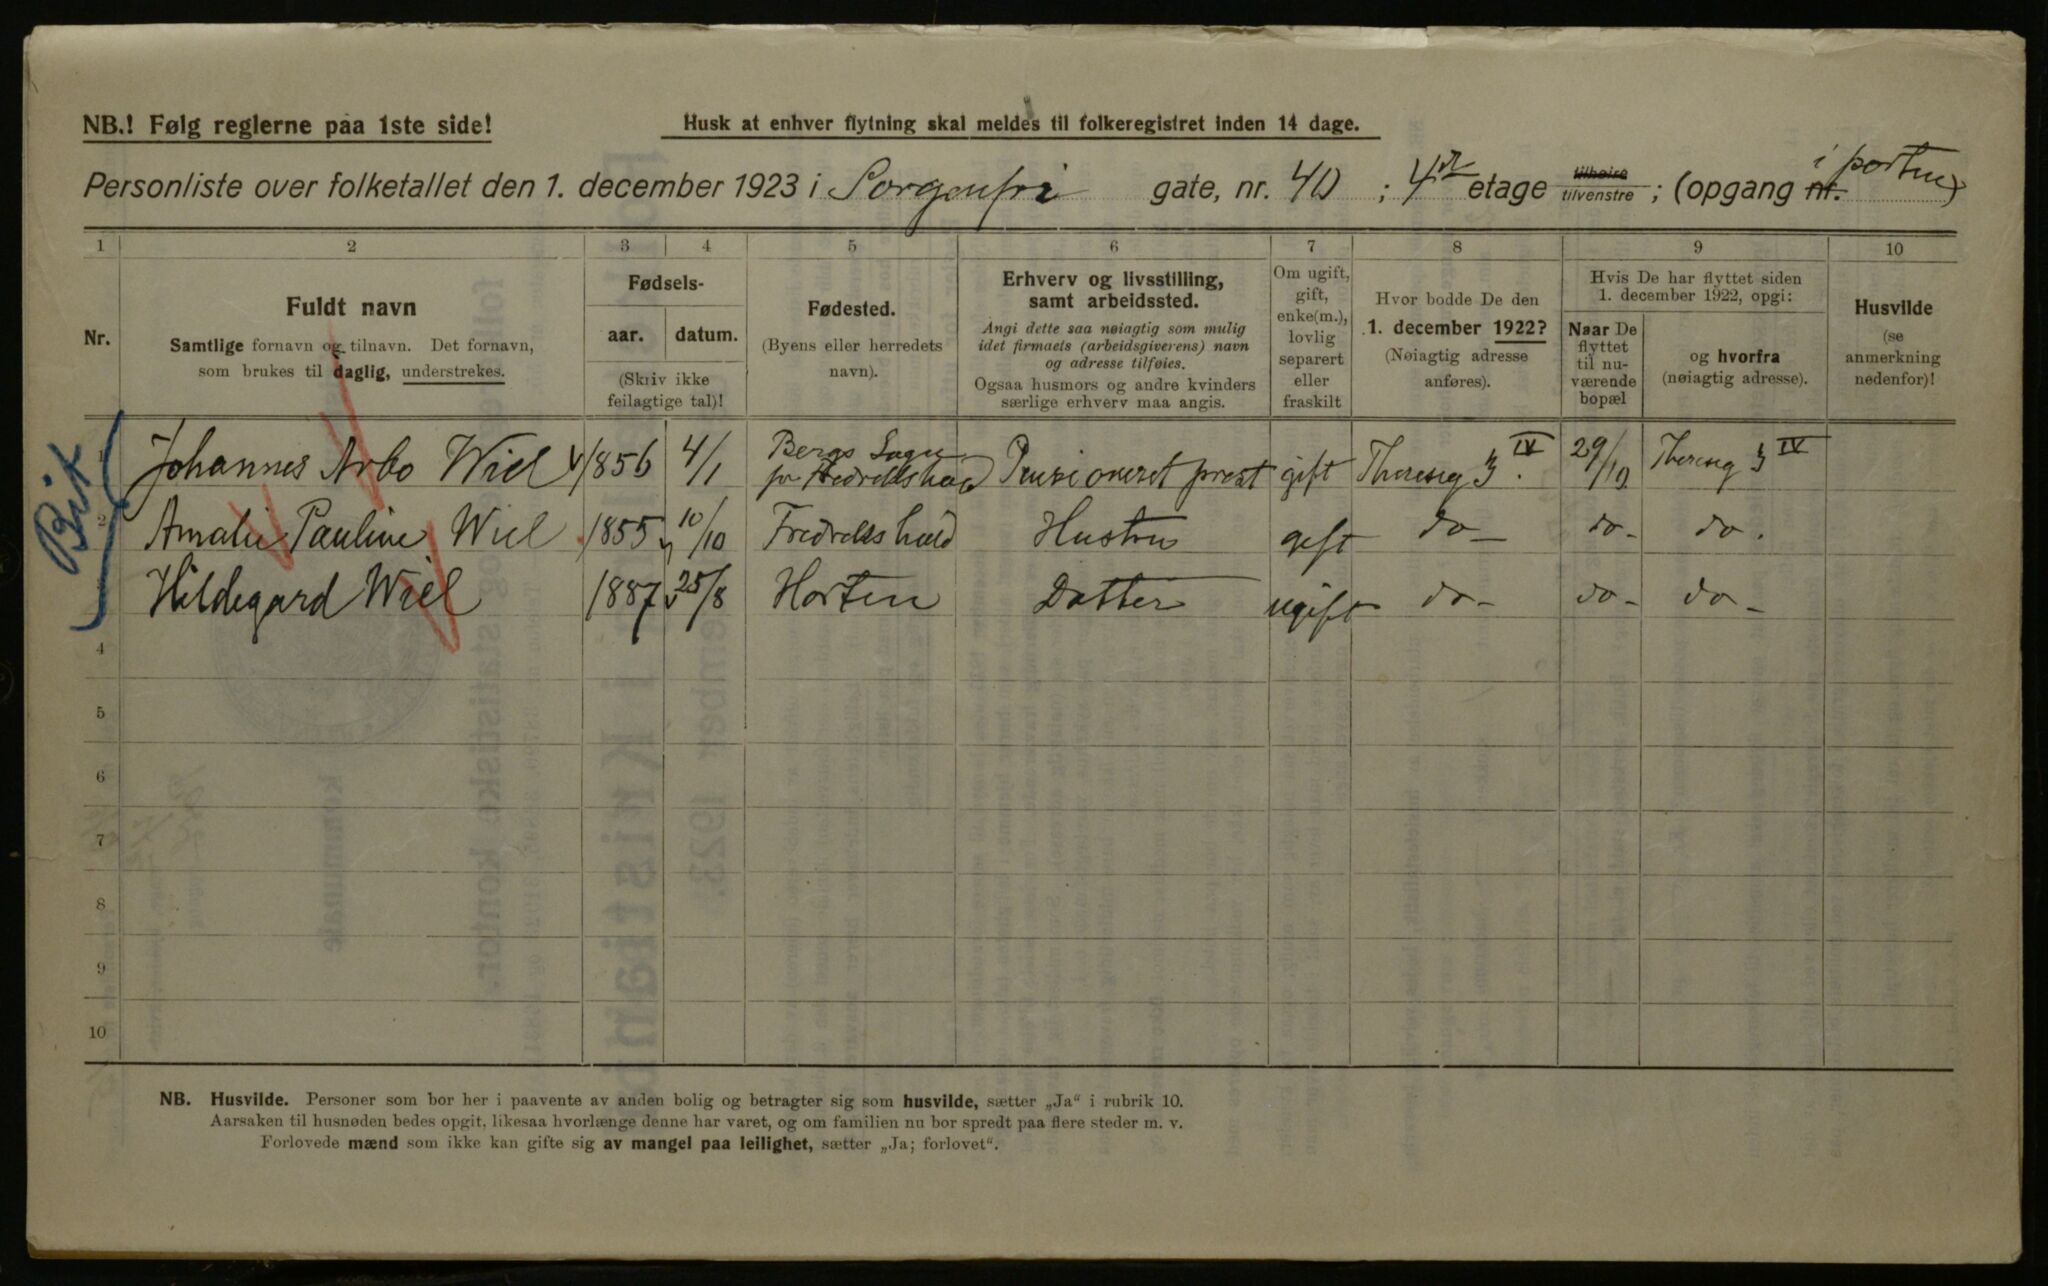 NB.! Følg reglerne paa 1ste side!
Husk at enhver flytning skal meldes til folkeregistret inden 14 dage.
Personliste over folketallet den 1. december 1923 i Sorgenfri gate, nr. 40 ; 4de etage tilhøire tilvenstre ; (opgang nr. i porten)
1 2 3 4 5 6 7 8 9 10
Nr.
Fuldt navn
Samtlige fornavn og tilnavn. Det fornavn,
som brukes til daglig, understrekes.
Fødsels-
aar. datum.
(Skriv ikke
feilagtige tal)!
Fødested.
(Byens eller herredets
navn).
Erhverv og livsstilling,
samt arbeidssted.
Angi dette saa nøiagtig som mulig
idet firmaets (arbeidsgiverens) navn
og adresse tilføies.
Ogsaa husmors og andre kvinders
særlige erhverv maa angis.
Om ugift,
gift,
enke(m.),
lovlig
separert
eller
fraskilt
Hvor bodde De den
1. december 1922?
(Nøiagtig adresse
anføres).
Hvis De har flyttet siden
1. december 1922, opgi:
Naar De
flyttet
til nu-
værende
bopæl
og hvorfra
(nøiagtig adresse).
Husvilde
(se
anmerkning
nedenfor)!
Bik
1 Johannes Arbo Wiel 1856 4/1 Bergs Sogn pr Fredrikshald Pensioneret prest gift Thereseg 3 IV. 29/10 Thereseg 3 IV
2 Amalie Pauline Wiel 1855 10/10 Fredrikshald Hustru gift do - do - do.
Hildegard Wiel 1887 25/8 Horten Datter ugift do - do - do -
4
5
6
7
8
9
10
NB. Husvilde. Personer som bor her i paavente av anden bolig og betragter sig som husvilde, sætter „Ja“ i rubrik 10.
Aarsaken til husnøden bedes opgit, likesaa hvorlænge denne har varet, og om familien nu bor spredt paa flere steder m. v.
Forlovede mænd som ikke kan gifte sig av mangel paa leilighet, sætter „Ja; forlovet“.